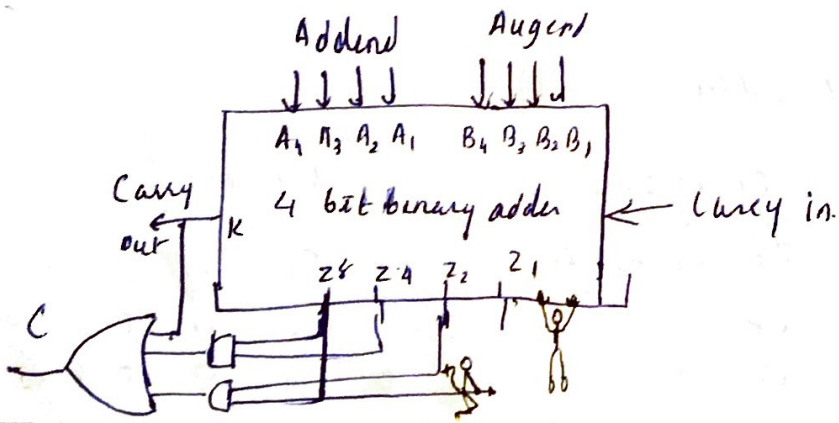 Addend Augend
A4 A3 A2 A1 B4 B3 B2 B1
Carry
out
K
4 bit binary adder
Carry in.
Z8 Z4 Z2 Z1
C